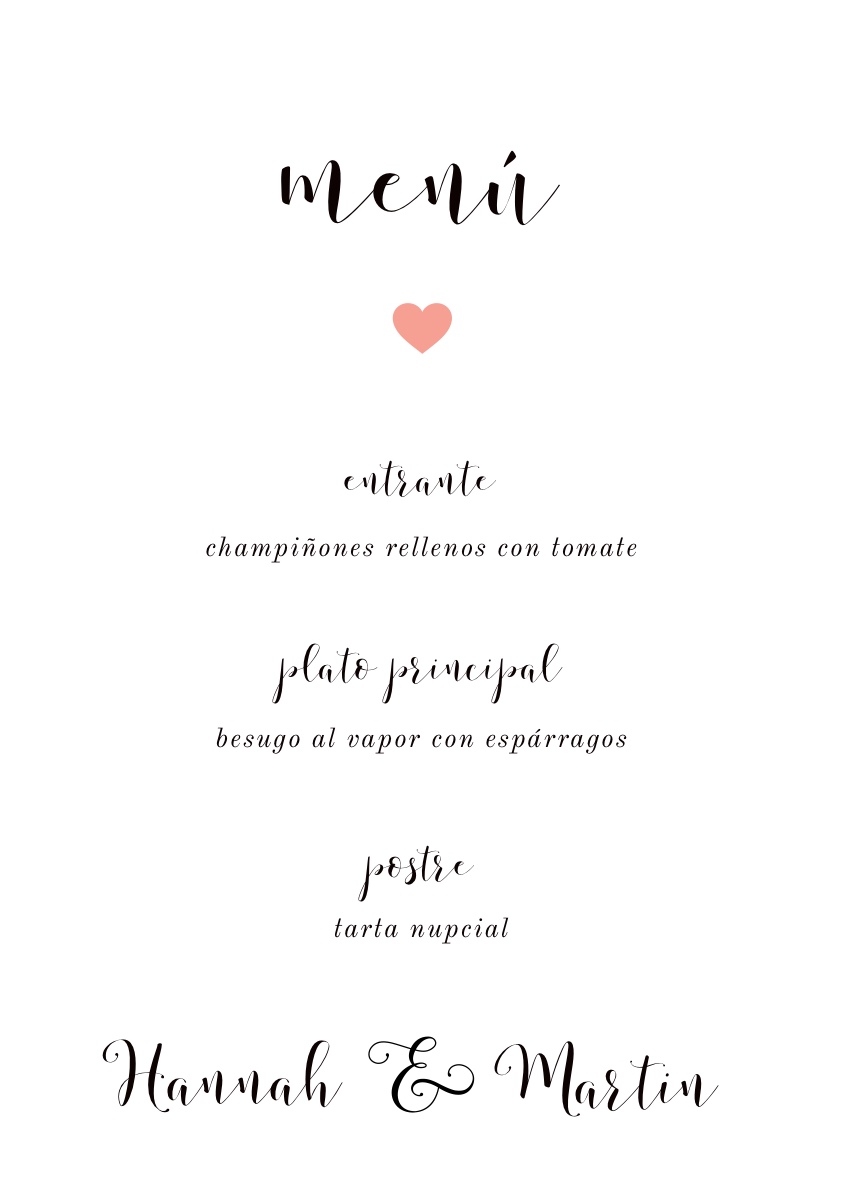 menú
entrante
champiñones rellenos con tomate
plato principal
besugo al vapor con espárragos
postre
tarta nupcial
Hannah & Martin